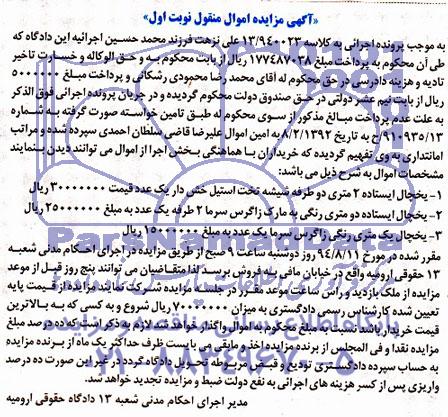 «آگهی مزایده اموال منقول نوبت اول»
به موجب پرونده اجرائی به کلاسه ۱۳/۹۴۰۰۲۳ علی نزهت فرزند محمد حسین اجرائیه این دادگاه که
طی آن محکوم به پرداخت مبلغ ۱۷۷۴۸۷۰۳۸ ریال از بابت محکوم به و حق الوکاله و خسارت تاخیر
تادیه و هزینه دادرسی در حق محکوم له آقای محمد رضا محمودی رشکانی و پرداخت مبلغ ۵۰۰۰۰۰۰
ریال از بابت نیم عشر دولتی در حق صندوق دولت محکوم گردیده و در جریان پرونده اجرائی فوق الذکر
به علت عدم پرداخت مبالغ مذکور از سوی محکوم له طبق تامین خواسته صورت گرفته به شماره
۹۱۰۹۳۵/۱۳/ج به تاریخ ۸/۲/۱۳۹۲ به امین اموال علیرضا قاضی سلطان احمدی سپرده شده و مراتب
امانتداری به وی تفهیم گردیده که خریداران با هماهنگی بخش اجرا از اموال می توانند دیدن بنمایند
مشخصات اموال به شرح ذیل می باشد:
۱- یخچال ایستاده ۲ متری دو طرفه شیشه تخت استیل خش دار یک عدد قیمت ۳۰۰۰۰۰۰۰ ریال
۲- یخچال ایستاده دو متری رنگی به مارک زاگرس سرما ۲ طرفه یک عدد به مبلغ ۲۵۰۰۰۰۰۰ ریال
۳- یخچال یک متری رنگی زاگرس سرما یک عدد به مبلغ ۱۵۰۰۰۰۰۰ ریال
مقرر شده در مورخ ۹۴/۸/۱۱ روز دوشنبه ساعت ۹ صبح از طریق مزایده در اجرای احکام مدنی شعبه
۱۳ حقوقی ارومیه واقع در خیابان مافی به فروش برسد لذا متقاضیان می توانند پنج روز قبل از موعد
مزایده از ملک بازدید و راس ساعت موعد مقرر در جلسات مزایده شرکت نمایند مزایده از قیمت پایه
تعیین شده کارشناس رسمی دادگستری به میزان ۷۰۰۰۰۰۰۰ ریال شروع و به کسی که به بالاترین
قیمت خریدار باشد نسبت به مبلغ محکوم به اموال واگذار خواهد شد لازم به ذکر است که ده درصد مبلغ
مزایده نقدا و فی المجلس از برنده مزایده اخذ و مابقی می بایست ظرف حداکثر یک ماه از برنده مزایده
به حساب سپرده دادگستری تودیع و قبض مربوطه تحویل دادگاه گردد در غیر این صورت ده درصد
واریزی پس از کسر هزینه های اجرائی به نفع دولت ضبط و مزایده تجدید خواهد شد.
مدیر اجرای احکام مدنی شعبه ۱۳ دادگاه حقوقی ارومیه
ParsNamadData
۰۲۱-۸۸۳۴۹۶۷۰-۵